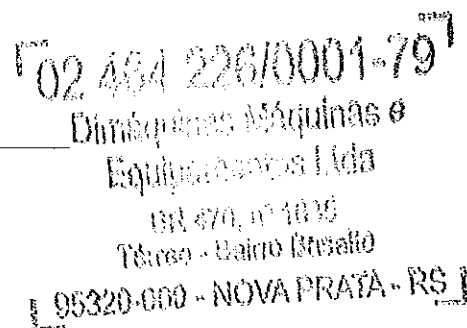 02 464 226/0001-79
Dimáquinas Máquinas e
Equipamentos Ltda
BR 470, nº
Térreo - Bairro Basalto
95320-000 - NOVA PRATA - RS